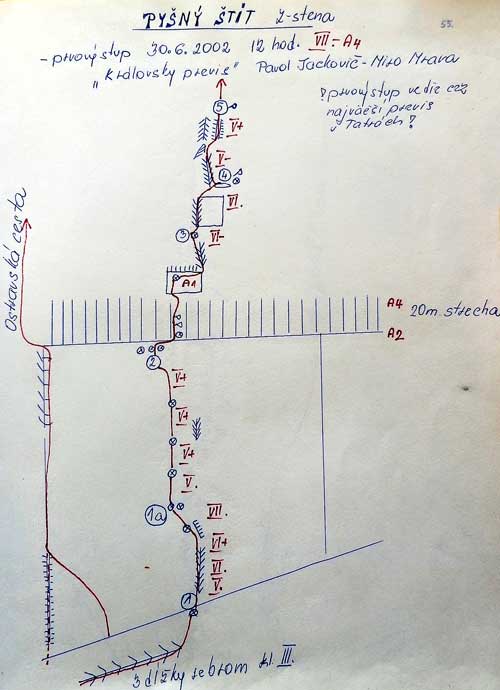 PYŠNÝ ŠTÍT Z-stena
55.
- prvovýstup 30.6.2002 12 hod. VII.- A4
"Kráľovsky previs" Pavol Jackovič - Miro Mrava
? prvovýstup vedie cez
najväčší previs
v Tatrách ?
5
V+
V-
4
VI.
3
VI-
Ostravská cesta
A1
A4
20m. strecha
A2
2
V+
V+
V+
V.
1a
VII.
VI+
VI.
V.
1
3 dĺžky rebrom kl. III.